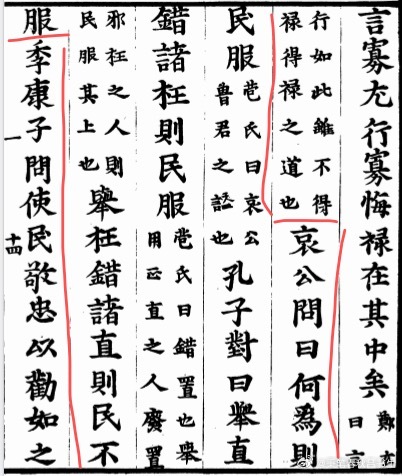 言寡尤行寡悔禄在其中矣鄭玄曰言
行如此雖不得禄得禄之道也哀公問曰何為則
民服苞氏曰哀公魯君之諡也孔子對曰舉直
錯諸枉則民服苞氏曰錯置也舉用正直之人廢置
邪枉之人則民服其上也舉枉錯諸直則民不
服季康子問使民敬忠以勸如之
一 十四